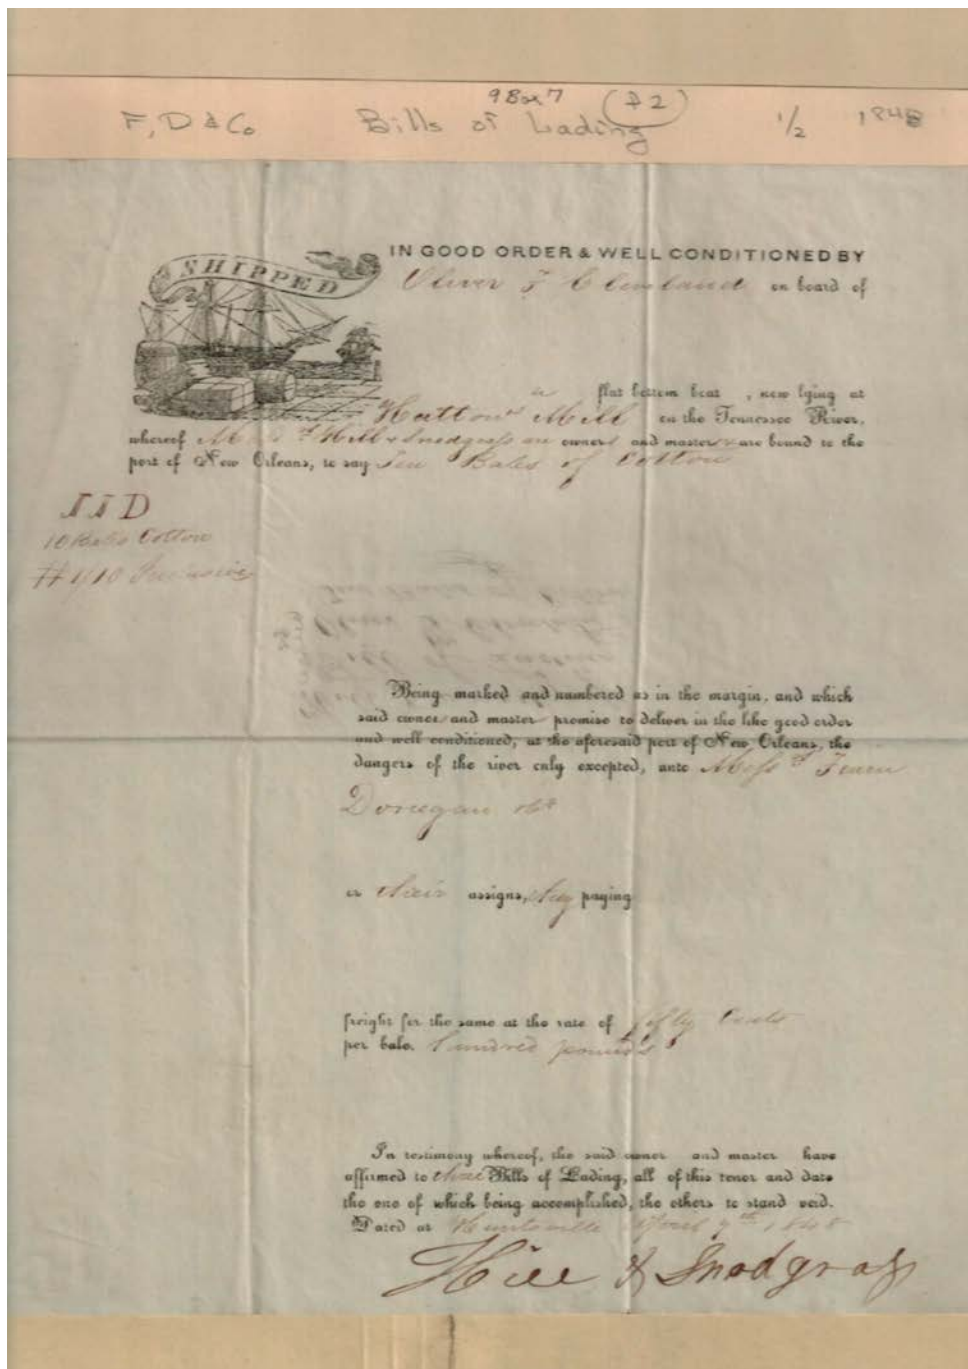 9 Box 7 (#2)
F, D & Co Bills of Lading 1/2 1848
SHIPPED
IN GOOD ORDER & WELL CONDITIONED BY
Oliver T Cleveland on board of
a flat bottom boat, now lying at
Hattons Mill on the Tennessee River,
whereof Messrs Hill & Snodgrass are owners and masters & are bound to the
port of New Orleans, to say Ten Bales of Cotton
D
10 Bales Cotton
Inclusive
Being marked and numbered as in the margin, and which
said owner and master promise to deliver in the like good order
and well conditioned, at the aforesaid port of New Orleans, the
dangers of the river only excepted, unto Messrs Fearn
Donegan & Co
or their assigns, they paying
freight for the same at the rate of fifty Cents
per bale. hundred pounds
In testimony whereof, the said owner and master have
affirmed to three Bills of Lading, all of this tenor and date
the one of which being accomplished, the others to stand void.
Dated at Huntsville April 7th 1848
Hill & Snodgrass